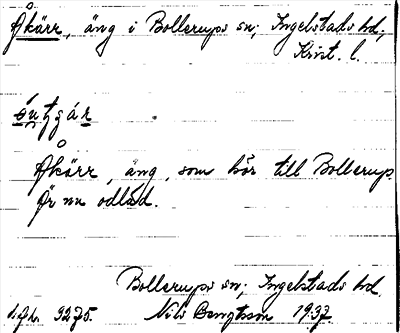 Åkärr, äng i Bollerups sn; Ingelstads hd,
Krist. l.
Åkärr, äng, som hör till Bollerup.
Är nu odlad.
Bollerups sn; Ingelstads hd.
Nils Bengtsson 1937.